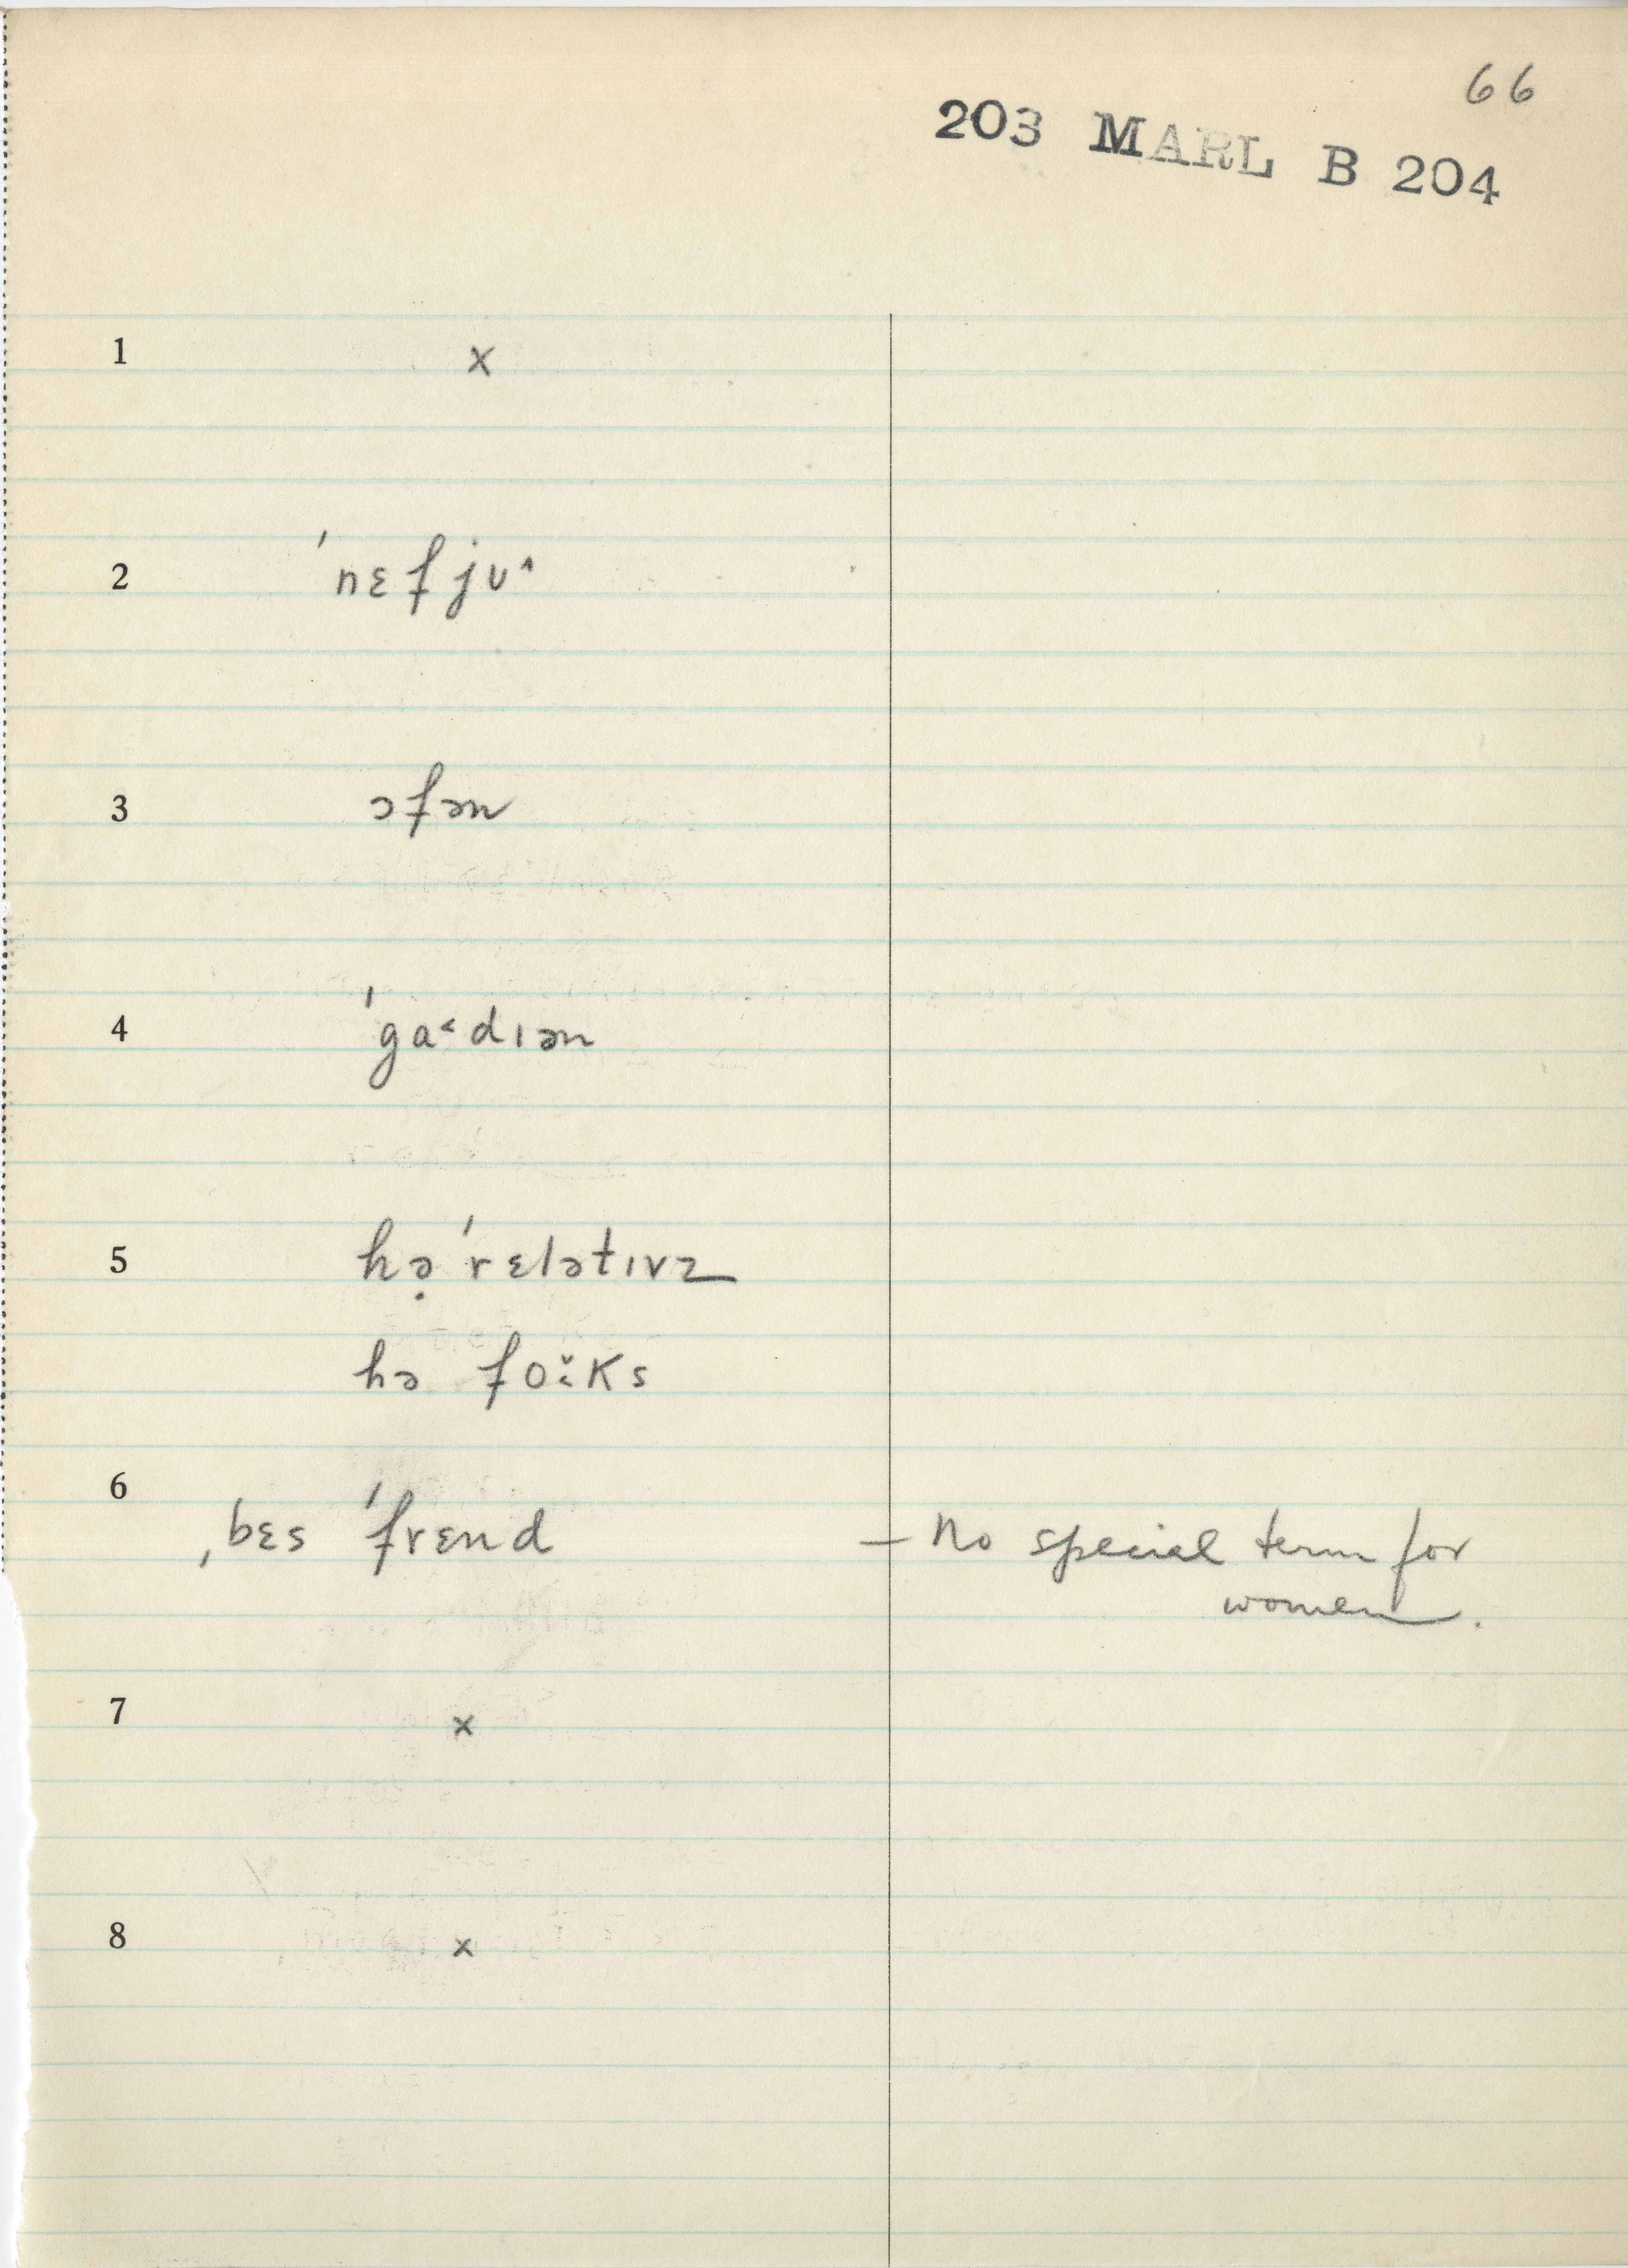 66
203 MARL B 204
1 x
2 ˈnɛfjʊ˄
3 ɔfən
4 ˈga˂dɪən
5 hə̣ ˈrɛlətɪvz
hə foˑ̆ks
6 ˌbɛs ˈfrɛnd – No special term for
women.
7 x
8 x